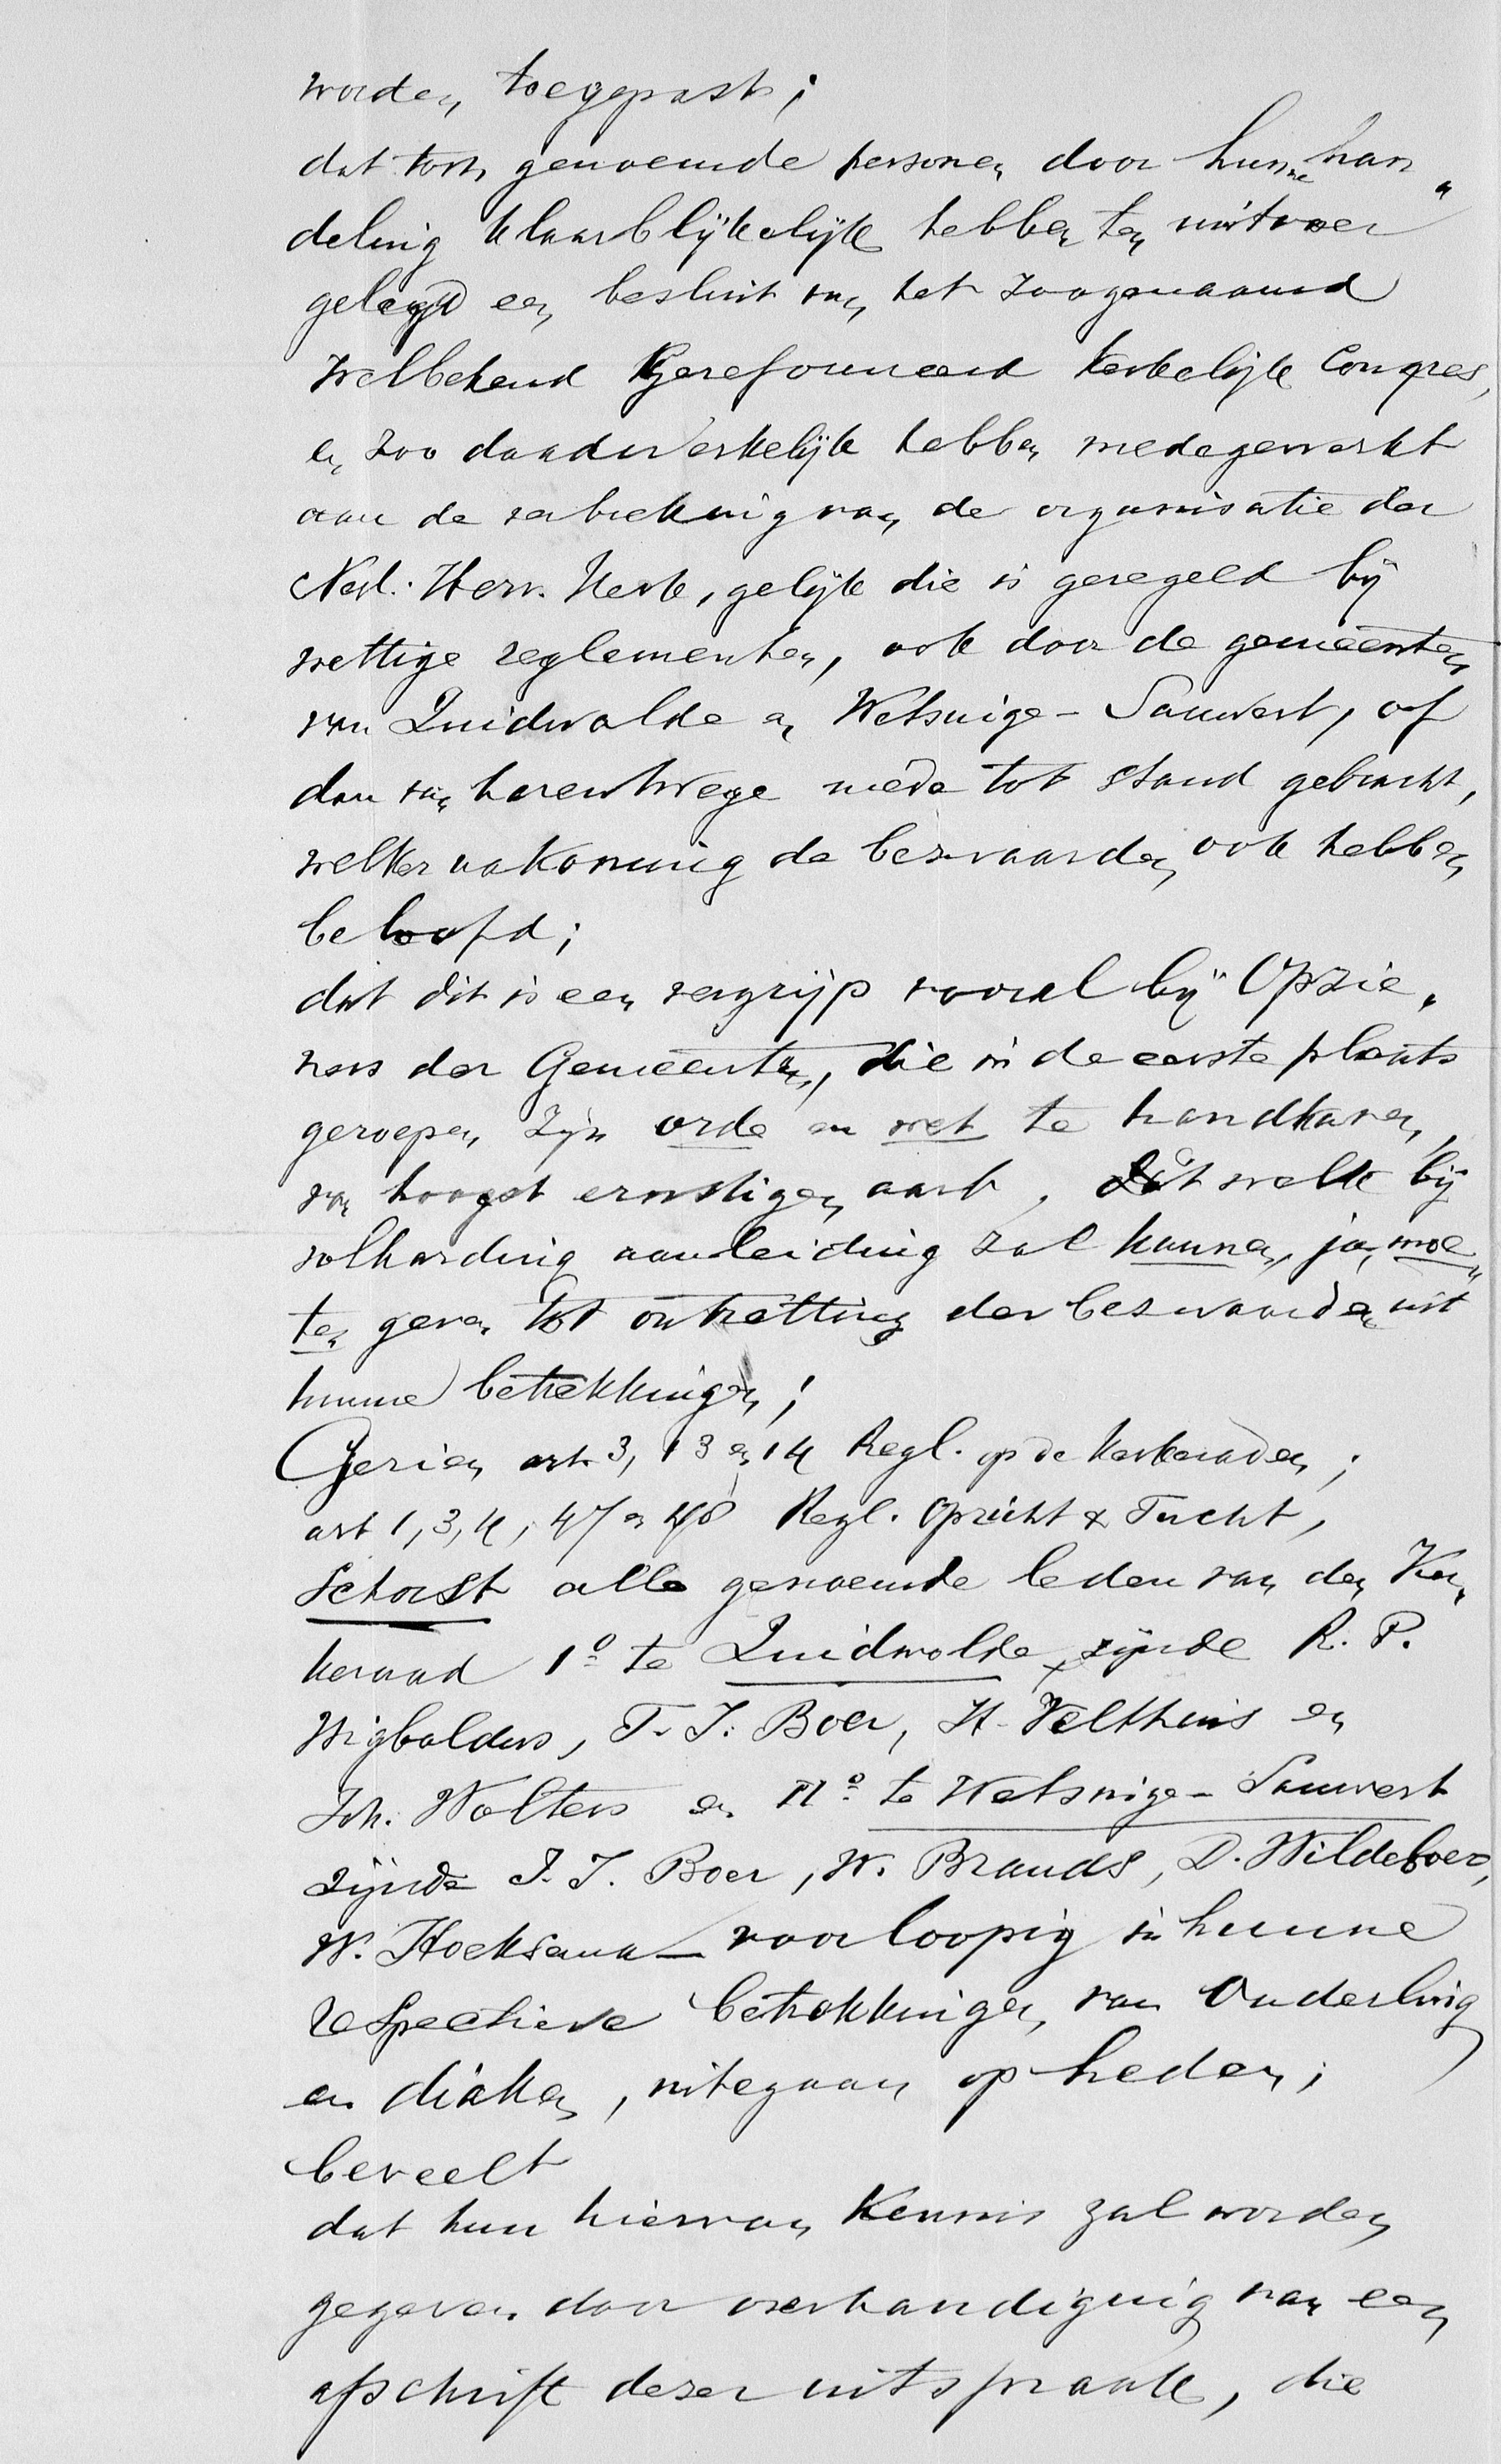 worden toegepast;
dat toch genoemde personen door hunne han„
deling klaarblijkelijk hebben ten uitvoer
gelegd een besluit van het zoogenaamd
welbekend Gereformeerd kerkelijk Congres,
en zoo daadwerkelijk hebben medegewerkt
aan de verbreking van de organisatie der
Ned. Herv. Kerk, gelijk die is geregeld bij
wettige reglementen, ook door de gemeenten
van Zuidwolde en Wetsinge-Sauwert, of
dan van harentwege mede tot stand gebracht,
welker nakoming de bezwaarden ook hebben
beloofd;
dat dit is een vergrijp vooral bij Opzie„
ners der Gemeenten, die in de eerste plaats
geroepen zijn orde en wet te handhaven,
van hoogst ernstigen aard, dat welk bij
volharding aanleiding zal kunnen, ja, moe„
ten geven tot ontzetting der bezwaarden uit
hunne betrekkingen;
Gezien art. 3, 13 en 14 Regl. op de Kerkeraden;
art 1, 3, 4, 47 en 48 Regl. Opzicht & Tucht,
Schorst alle genoemde leden van den Ker„
keraad 1o te Zuidwolde, zijnde R. P.
Wigboldus, T. J. Boer, H. Velthuis en
Joh. Wolters en IIo te Wetsinge-Sauwert
zijnde J. J. Boer, W. Brands, D. Wildeboer,
W. Hoeksema – voorloopig in hunne
respectieve betrekkingen van Ouderling
en diaken, uitegaan op heden;
beveelt
dat hun hiervan kennis zal worden
gegeven door overhandiging van een
afschrift dezer uitspraak, die